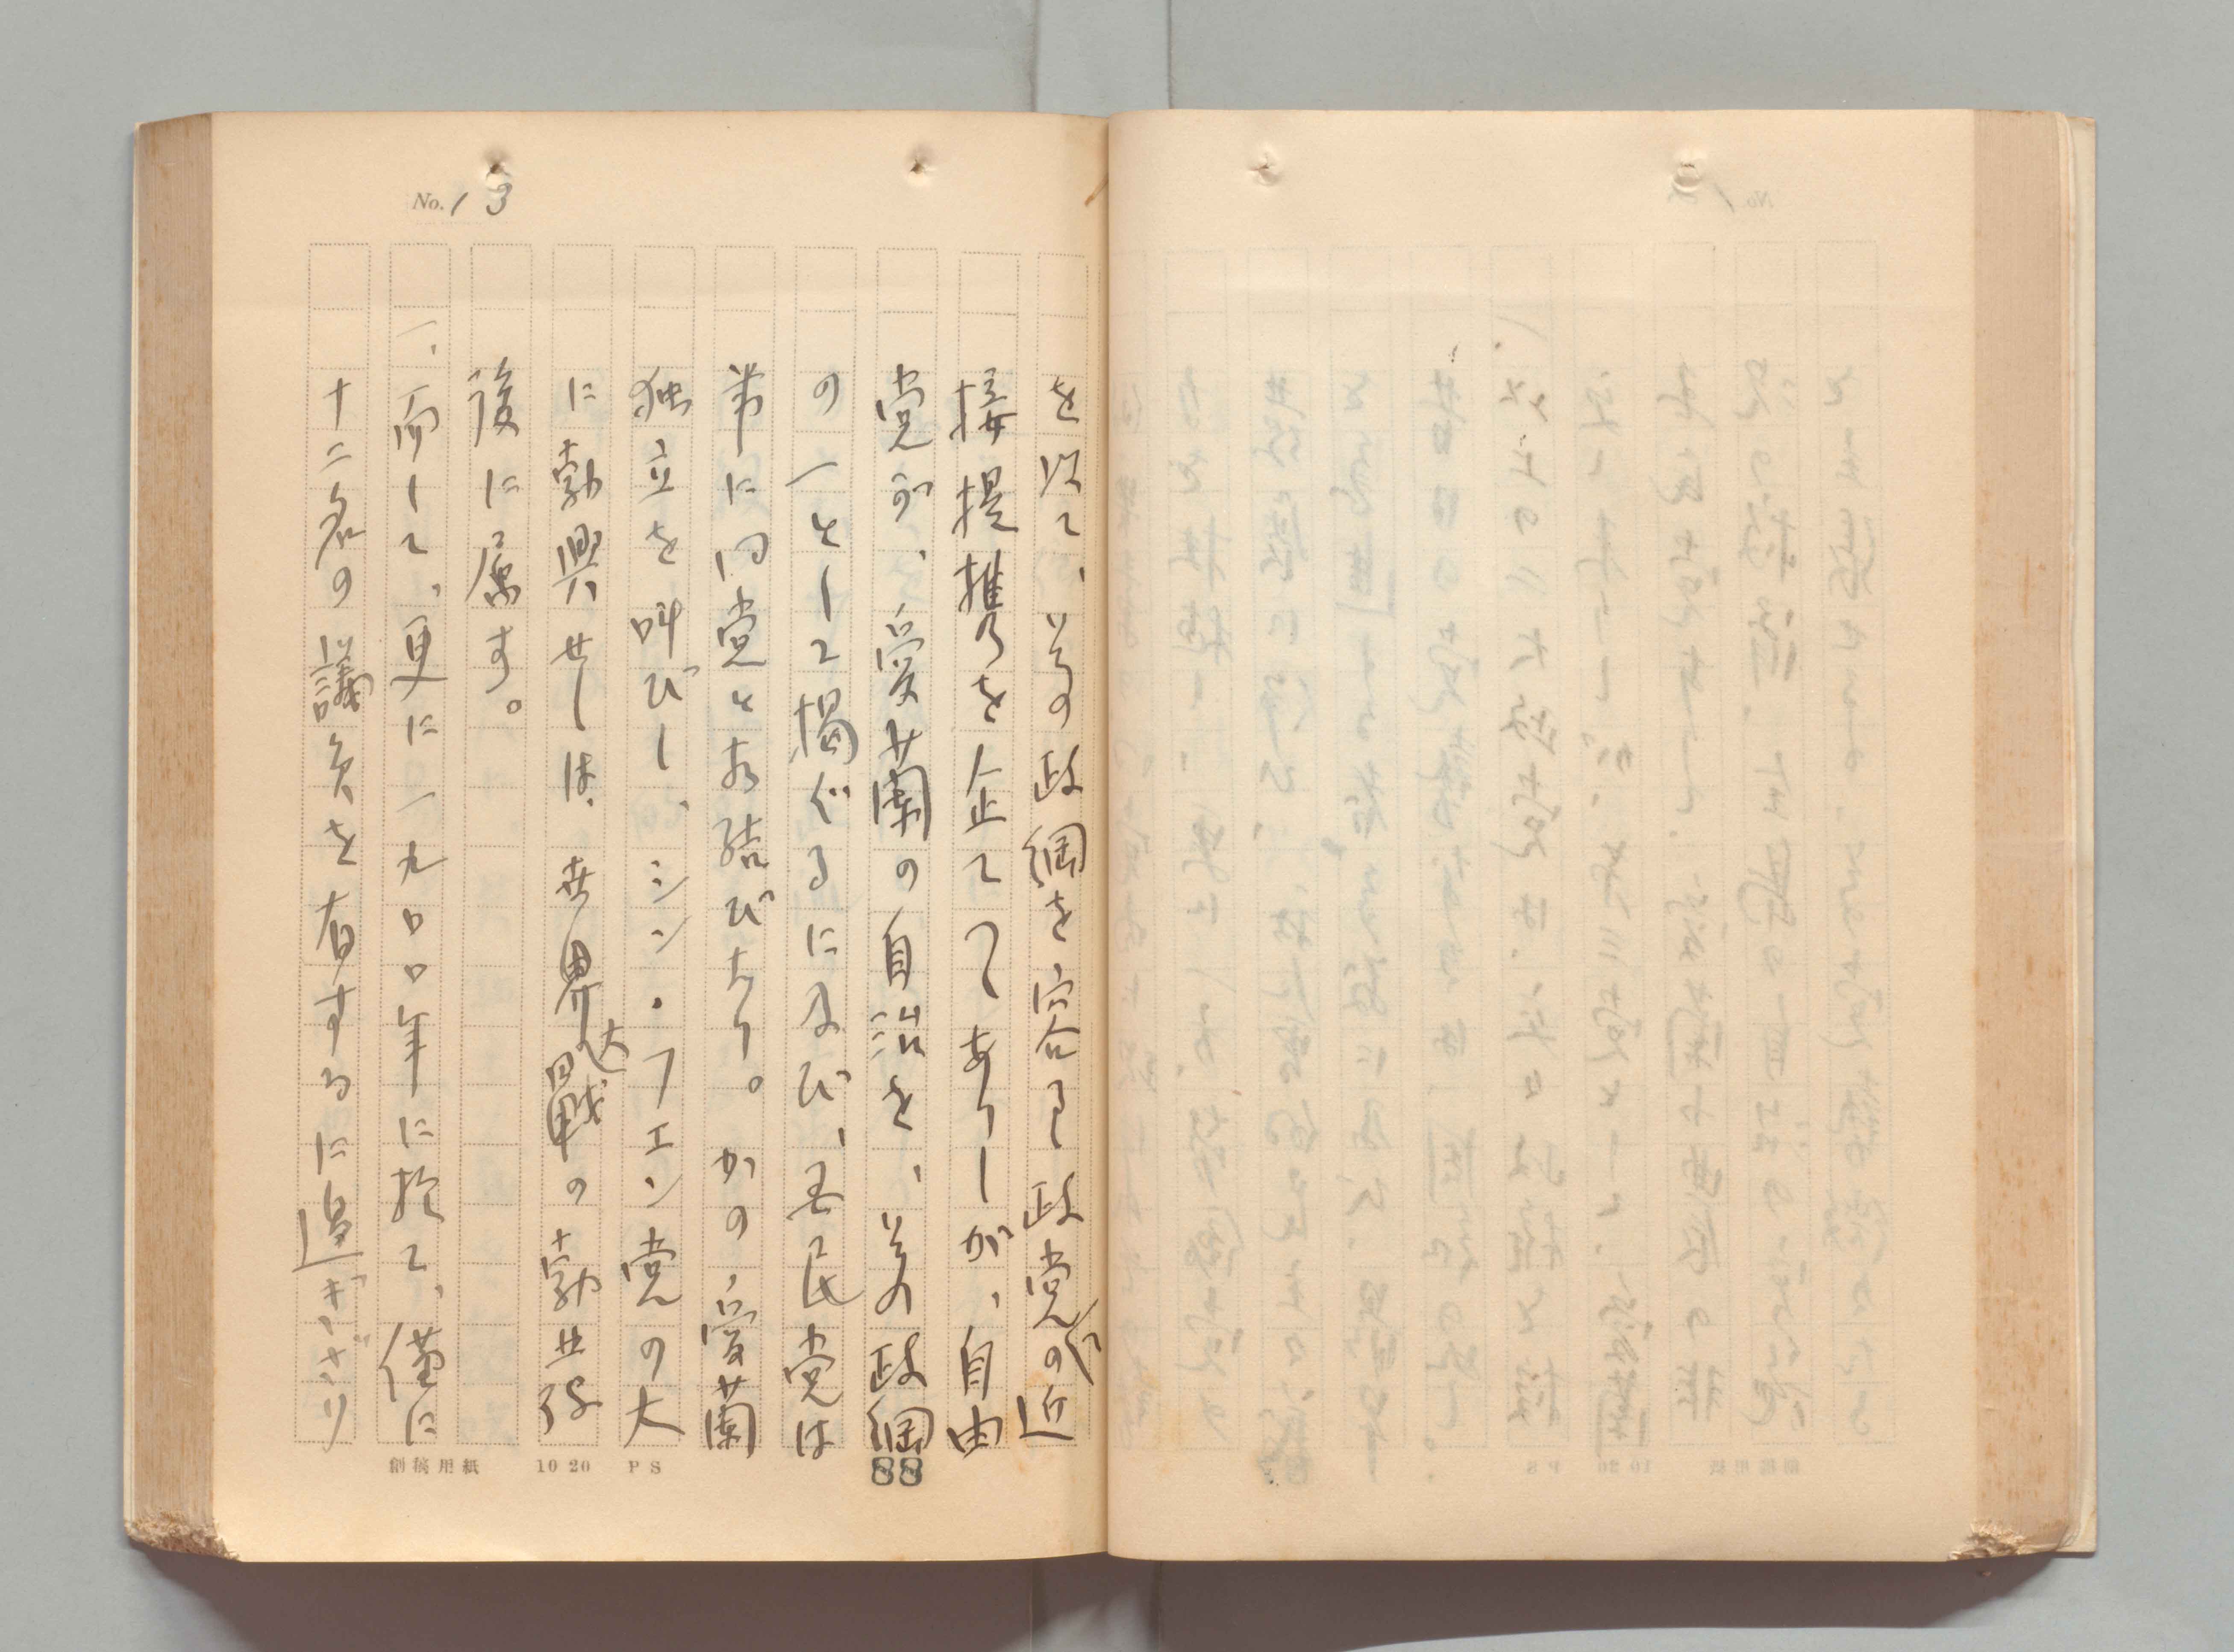 No. 13
を以て、その政綱を容るゝ政党への近
接提携を企てつゝありしが、自由
党が、愛蘭の自治を、その政綱
の一として掲ぐるに及び、国民党は
常に同党と相結びたり。かの愛蘭
独立を叫びし、シン・フエン党の大
に勃興せしは、世界大戦の勃発
後に属す。
一、而して、更に一九〇〇年に於て、僅に
十二名の議員を有するに過ぎざり
88
創稿用紙 10 20 PS